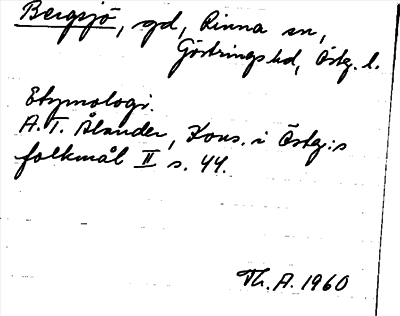 Bergsjö, gd, Rinna sn,
Göstrings hd, Östg. l.
Etymologi.
A. T. Ålander, Kons. i Östg:s
folkmål II s. 44.
Th. A. 1960